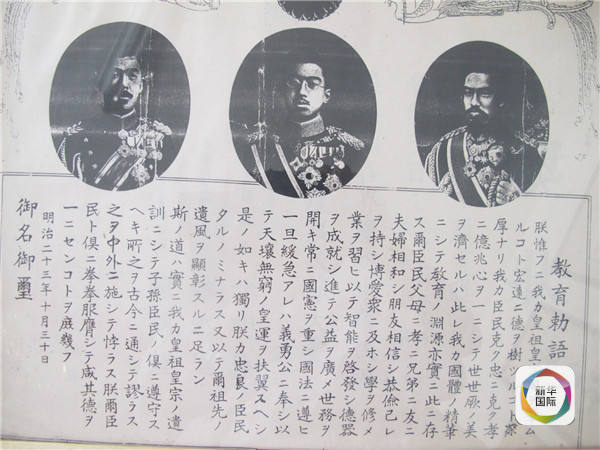 教育勅語
朕惟フニ我カ皇祖皇
ルコト宏遠ニ德ヲ樹ツル
厚ナリ我カ臣民克ク忠ニ克ク孝
ニ億兆心ヲ一ニシテ世世厥ノ美
ヲ濟セルハ此レ我カ國體ノ精華
ニシテ教育ノ淵源亦實ニ此ニ存
ス爾臣民父母ニ孝ニ兄弟ニ友ニ
夫婦相和シ朋友相信シ恭儉己レ
ヲ持シ博愛衆ニ及ホシ學ヲ修メ
業ヲ習ヒ以テ智能ヲ啓發シ德器
ヲ成就シ進テ公益ヲ廣メ世務ヲ
開キ常ニ國憲ヲ重シ國法ニ遵ヒ
一旦緩急アレハ義勇公ニ奉シ以
テ天壤無窮ノ皇運ヲ扶翼スヘシ
是ノ如キハ獨リ朕カ忠良ノ臣民
タルノミナラス又以テ爾祖先ノ
遺風ヲ顯彰スルニ足ラン
斯ノ道ハ實ニ我カ皇祖皇宗ノ遺
訓ニシテ子孫臣民ノ俱ニ遵守ス
ヘキ所之ヲ古今ニ通シテ謬ラス
之ヲ中外ニ施シテ悖ラス朕爾臣
民ト俱ニ拳拳服膺シテ咸其德ヲ
一ニセンコトヲ庶幾フ
明治二十三年十月三十日
御名御璽
新华
国际